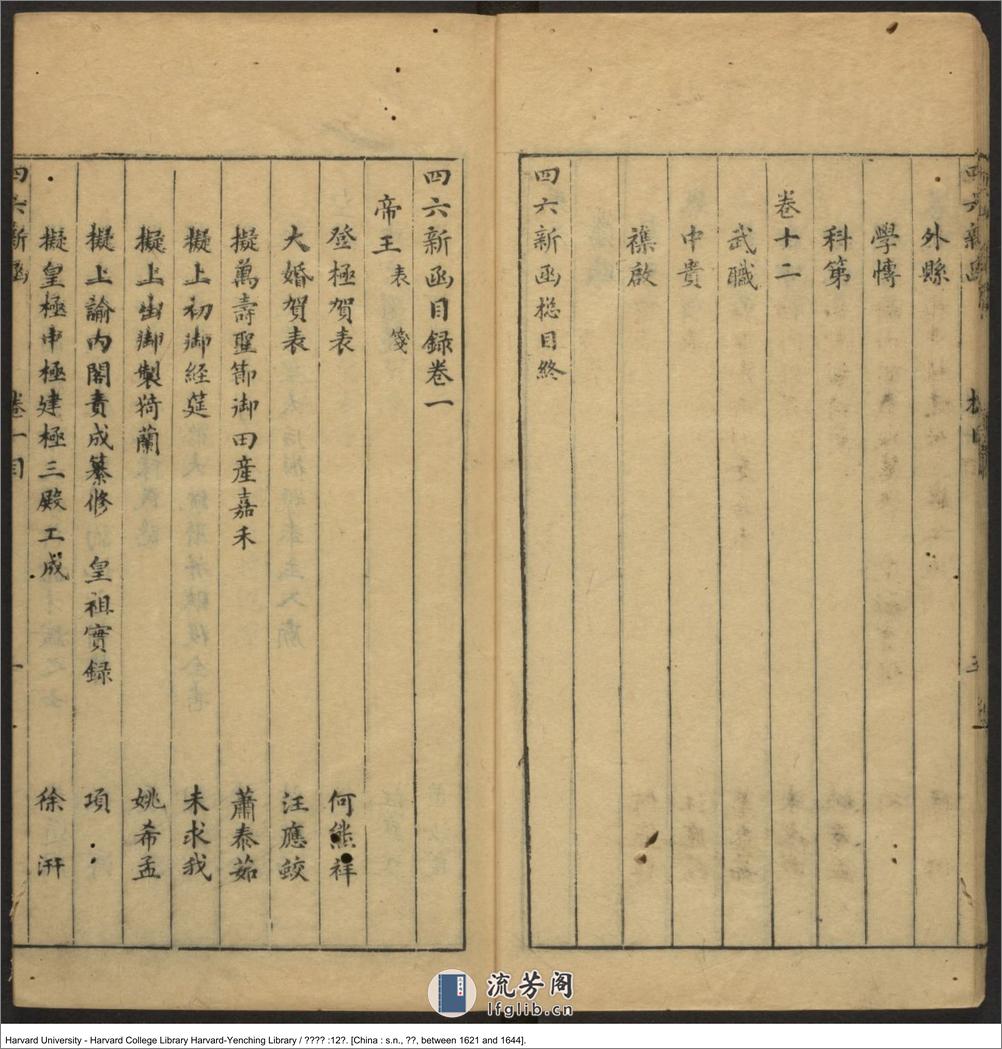 外縣
學博
科第
卷十二
武職
中貴
襍啟
四六新函總目終
四六新函目録卷一
帝王 表 箋
登極賀表 何熊祥
大婚賀表 汪應蛟
擬萬壽聖節御田産嘉禾 蕭泰茹
擬上初御経筵 未求我
擬上出御製猗蘭 姚希孟
擬上諭内閣責成纂修 皇祖實録 項
擬皇極中極建極三殿工成 徐汧
四六新函 卷一目 一
流芳阁
lfglib.cn
Harvard University - Harvard College Library Harvard-Yenching Library / ???? :12?. [China : s.n., ??, between 1621 and 1644].